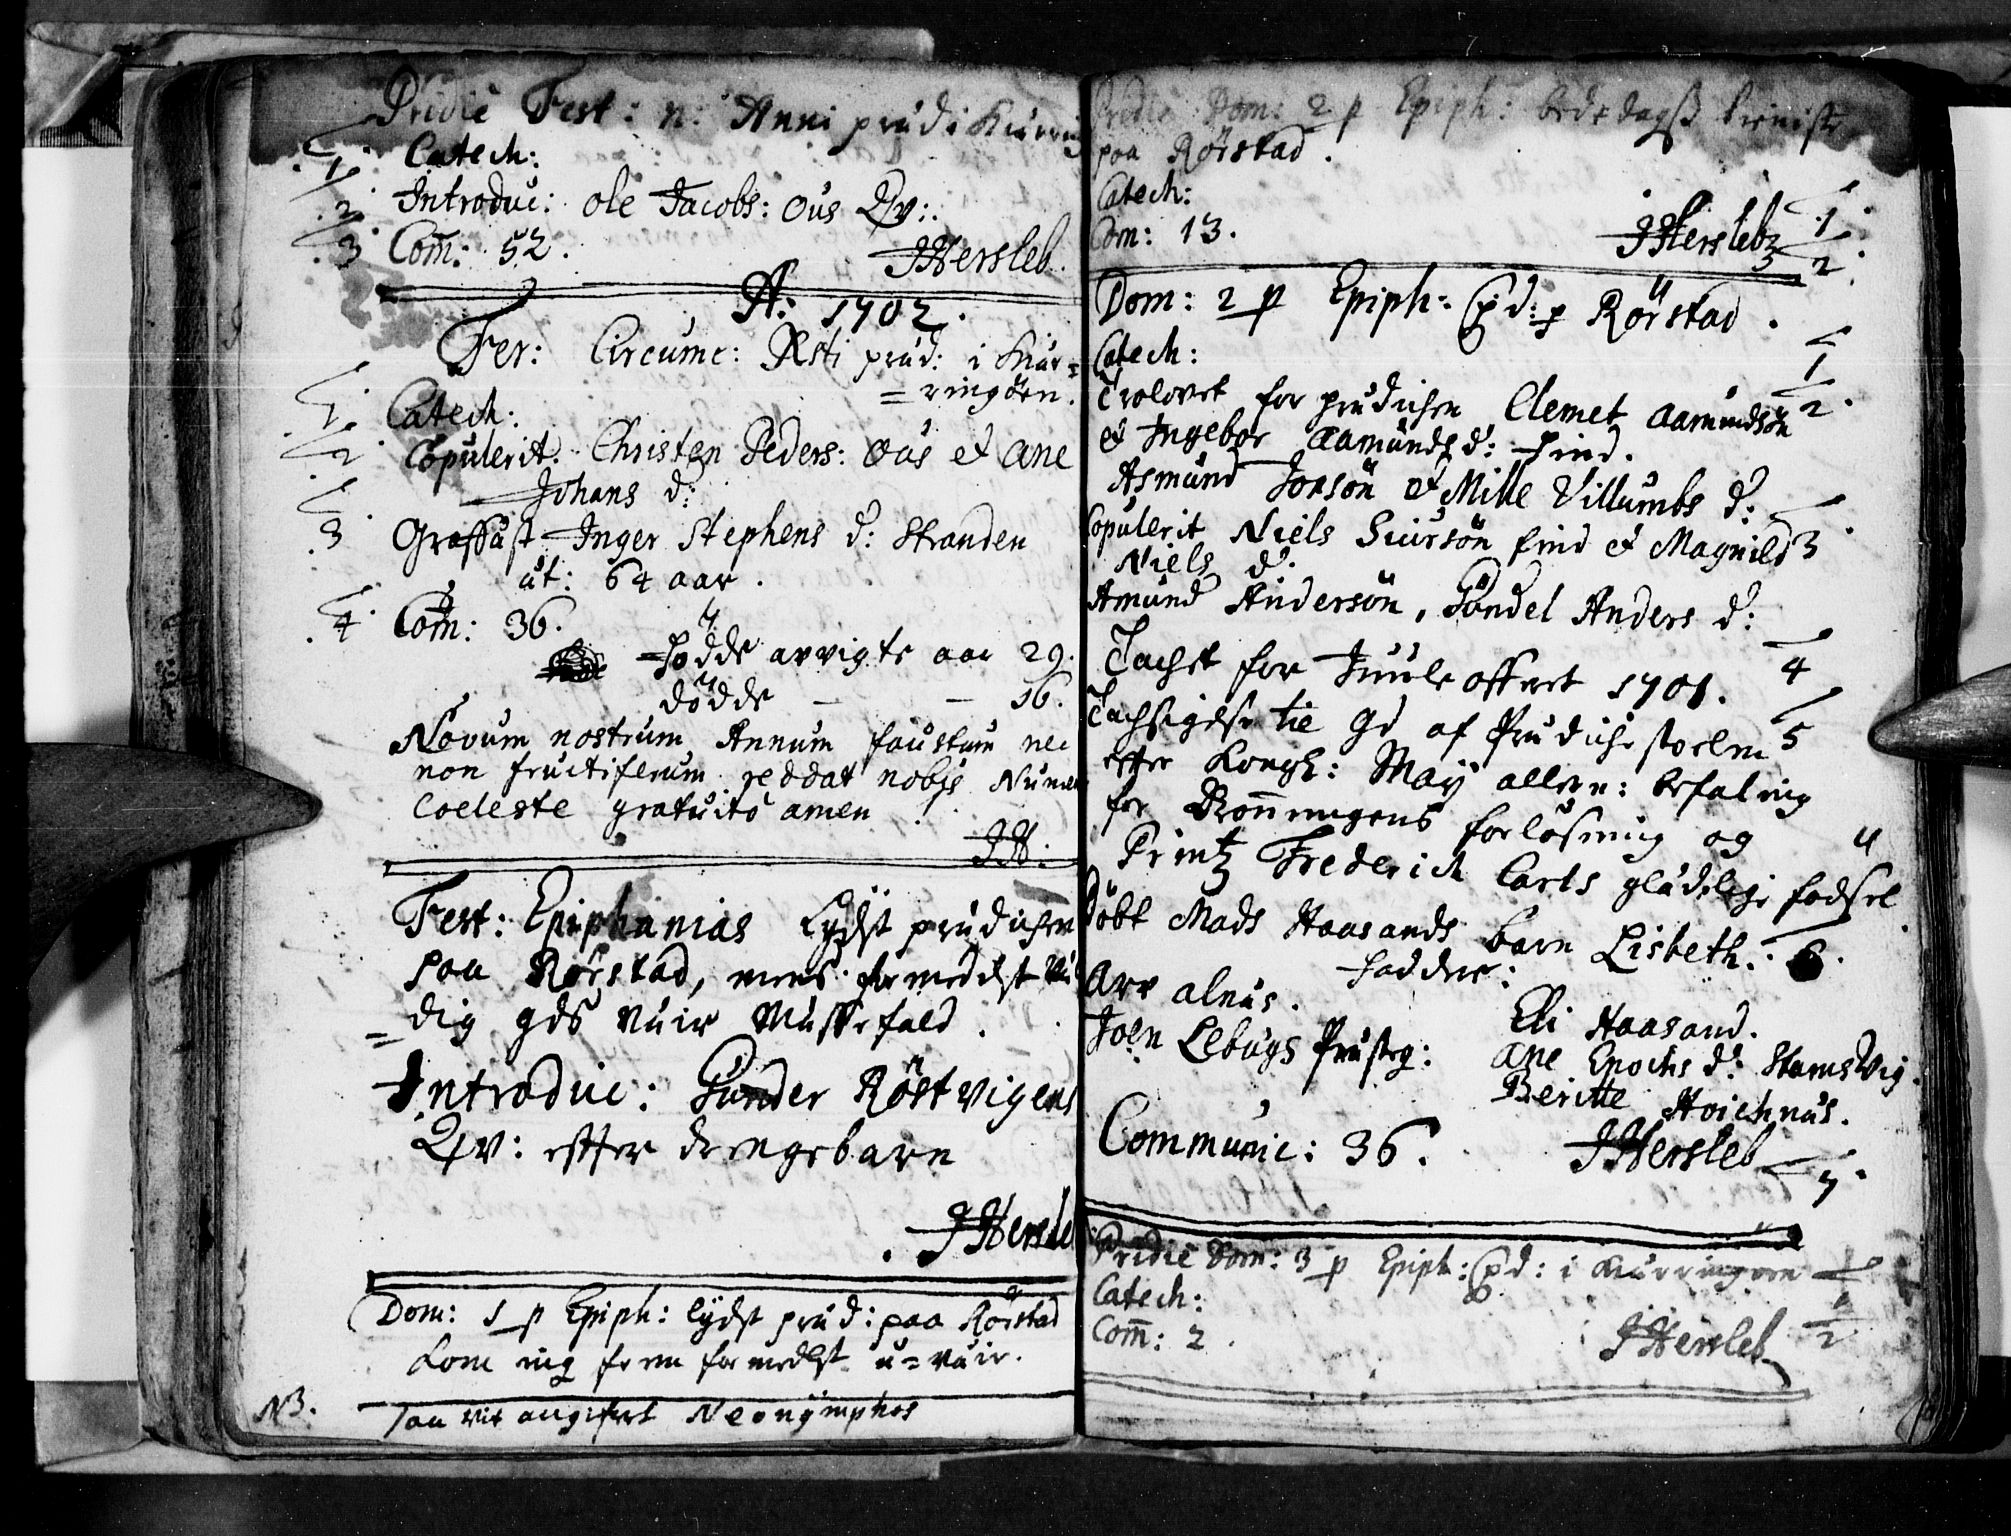 Pridie Fest: n: Anni præd: i Kierring
1. Catech:
2. Introduc: Ole Jacobs: Øus Qv:
3. Com̄: 52.
JHersleb.
A: 1702.
Fer: Circumc: Xsti præd: i Kiær=
=ringöen.
1. Catech:
2. Copulerit. Christen Peders: Øus et Ane
Johans d:
3. Graffæst Inger Stephens d: Stranden
æt: 64 aar.
4. Com̄: 36.
Födde avvigte aar 29.
dödde – – 16.
Novum nostrum Annum faustum nec
non fructiferum reddat nobis Numen
Coeleste gratuito amen!
JH:
Fest: Epiphanias lydst prædichen
paa Rörstad, mens formedelst
=dig gds vær
Introduc: Gunder Röstvigens
Qv: efter drengebarn
JHersle
Dom: 1 p Epiph: lydst præd: paa Rörstad
kom frem formedlst u=væir.
NB. Neonymphos
Pridie Dom: 2 p Epiph: bededagss tieniste
paa Rörstad.
Catech: 1.
Com: 13. 2.
JHersleb
Dom: 2 p Epiph: præd: p Rörstad.
Catech: 1
Trolovet for prædichen Clemet Aamundsön 2.
et Ingebor Aamunds d: find.
Asmund Jonsön et Mille Villumbs d:
Copulerit Niels Siursön find et Magnild 3.
Niels d:
Amund Andersön, Gundel Anders d:
Tachet for Juule offret 1701. 4
Tachsigelse til Gd af Prædichestoelen 5
efter Kongl: May allern: befaling
for Dronningens forlösning og
Printz Frederich Carls glædelige födsel.
Döbt Mads Haasands barn Lisbeth. 6.
Fadder:
Arr Alnæs.
Joen Lebugs Præsteg:
Eli Haasand.
Ane Enochs d: Stamsvig.
Beritte Hoichnæs.
Communic: 36.
JHersleb
7.
Pridie Dom: 3 p Epiph: præd: i Kierringöen
Catech: 1
Com̄: 2. 2
JHersleb